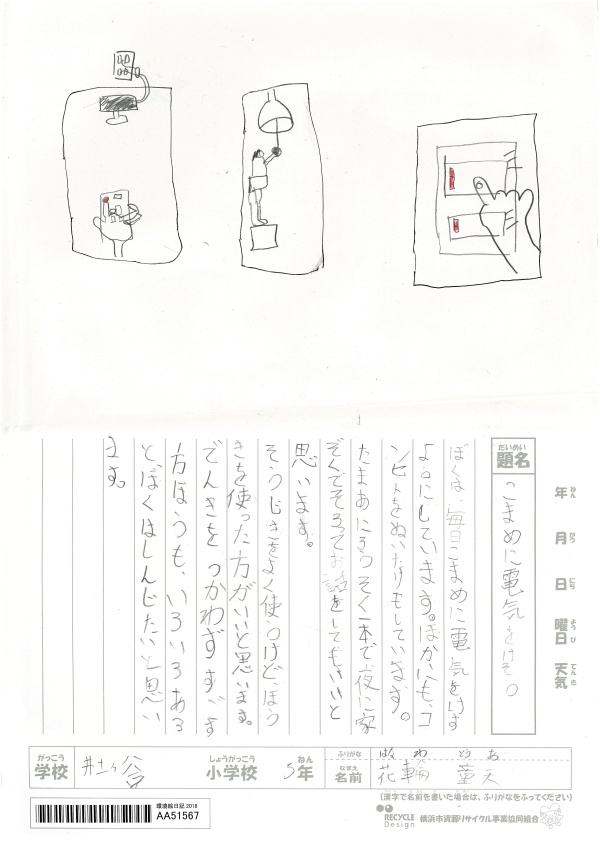 だいめい
題名
こまめに電気をけそう
年 ねん
月 がつ
日 にち
曜日 ようび
天気 てんき
ぼくは、毎日こまめに電気をけす
ようにしています。ほかにも、コ
ンセントをぬいたりもしています。
たまあにろうそく一本で夜に家
ぞくでそろってお話をしてもいいと
思います。
そうじきをよく使うけど、ほう
きを使った方がいいと思います。
でんきをつかわずすごす
方ほうも、いろいろある
とぼくはしんじたいと思い
ます。
がっこう
学校
井土ヶ谷
しょうがっこう
小学校
5年 ねん
ふりがな
なまえ
名前
はな わ
花輪
(漢字で名前を書いた場合は、ふりがなをふってください)
環境絵日記 2018
AA51567
RECYCLE Design
横浜市資源リサイクル事業協同組合